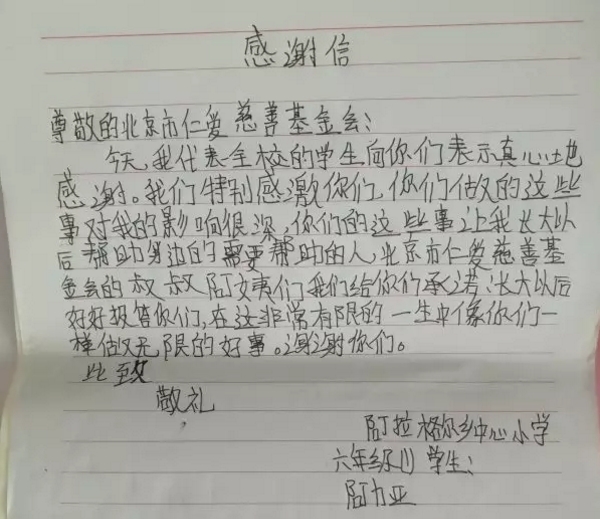 感谢信
尊敬的北京市仁爱慈善基金会：
今天，我代表全校的学生向你们表示真心地
感谢。我们特别感激你们，你们做的这些
事对我的影响很深，你们的这些事让我长大以
后帮助身边的需要帮助的人，北京市仁爱慈善基
金会的叔叔阿姨们我们给你们承诺：长大以后
好好报答你们，在这非常有限的一生中像你们一
样做无限的好事。谢谢你们。
此致
敬礼
阿拉格尔乡中心小学
六年级(1)学生：
阿力亚